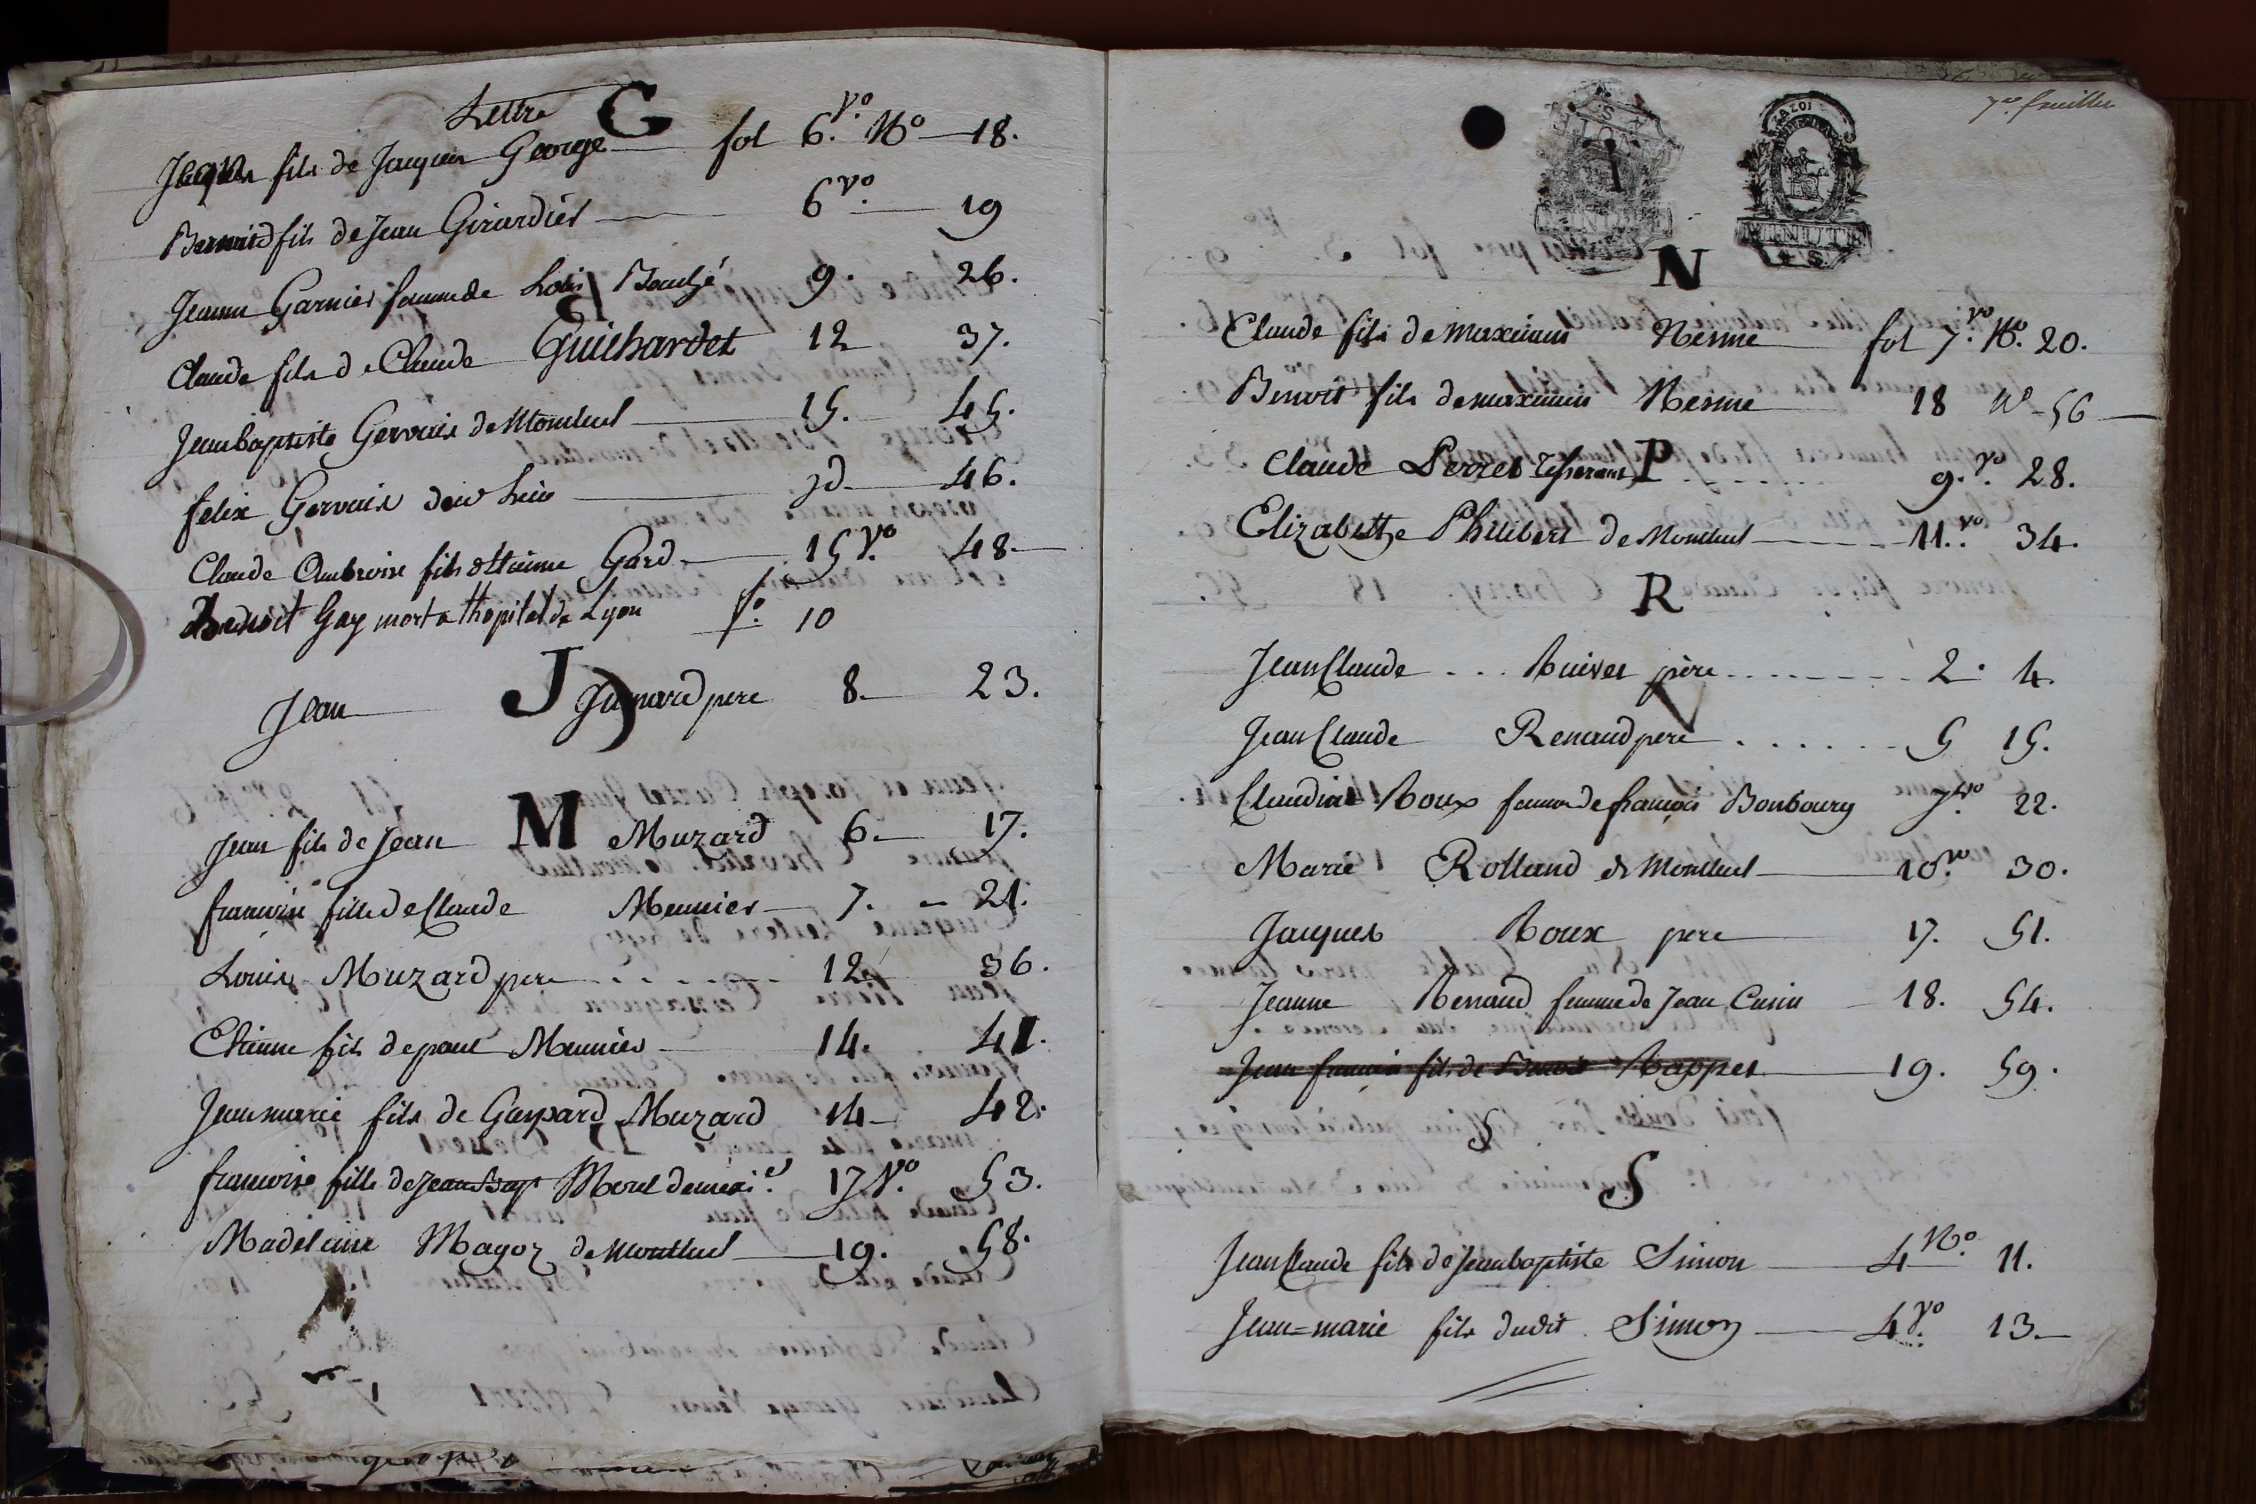 Lettre G
Jacques fils de Jacques George fol 6. Vo. No 18.
Benoid fils de Jean Girardier 6 vo. 19
Jeanne Garnier femme de Loüis Bouchè 9. 26.
Claude fils de Claude Guichardet 12 37.
Jeanbaptiste Gervais de Montluel 15. 45.
felix Gervais 46.
Claude Ambroise fils Gard 15 Vo. 48
Benoit Gay mort a lhopital de Lyon fo. 10
J
Jean pere 8. 23.
M
Jean fils de Jean Muzard 6. 17.
francoise fille de Claude Meunier 7. 21.
Louis Muzard pere 12 36.
Etienne fils de paul Meunier 14. 41.
Jeanmarie fils de Gaspard Muzard 14 42.
francoise fille de Jean Bapt Morel 17 Vo. 53.
Madelaine Magoz de Montluel 19. 58.
7me feuillet
LA LOI
MINUTE
N
Claude fils de maximin Nesme fol 7. vo No. 20.
Benoit fils de maximin Nesme 18 No 56
P
Claude Perret 9. vo. 28.
Elizabethe Philibert de Montluel 11. vo 34.
R
Jean Claude Ruivet père 2. 4.
Jean Claude Renaud pere 5 15.
Claudine Roux femme de francois Bonbourg 7. vo 22.
Marie Rolland de Montluel 10. vo 30.
Jacques Roux pere 17. 51.
Jeanne Renaud femme de Jean Cusin 18. 54.
Jean francois fils de Benoit Rappet 19. 59.
S
S
Jean Claude fils de Jeanbaptiste Simon 4 Vo. 11.
Jean=marie fils dudit Simon 4 Vo. 13.